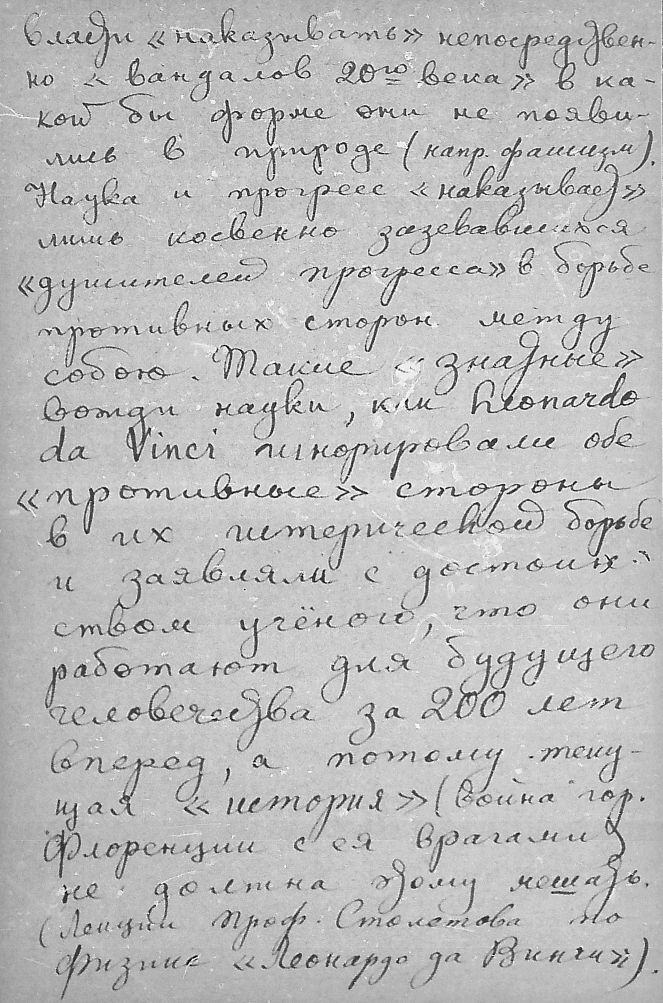 власти «наказывать» непосредствен-
но «вандалов 20го века» в ка-
кой бы форме они не появи-
лись в природе (напр. фашизм).
Наука и прогресс «наказывает»
лишь косвенно зазевавшихся
«душителей прогресса» в борьбе
противных сторон между
собою. Такие «знатные»
вожди науки, как Leonardo
da Vinci игнорировали обе
«противные» стороны
в их истерической борьбе
и заявляли с достоин-
ством учёного, что они
работают для будущего
человечества за 200 лет
вперед, а потому теку-
щая «история» (война гор.
Флоренции с ея врагами)
не должна этому мешать.
(Лекции проф. Столетова по
физике «Леонардо да Винчи»).